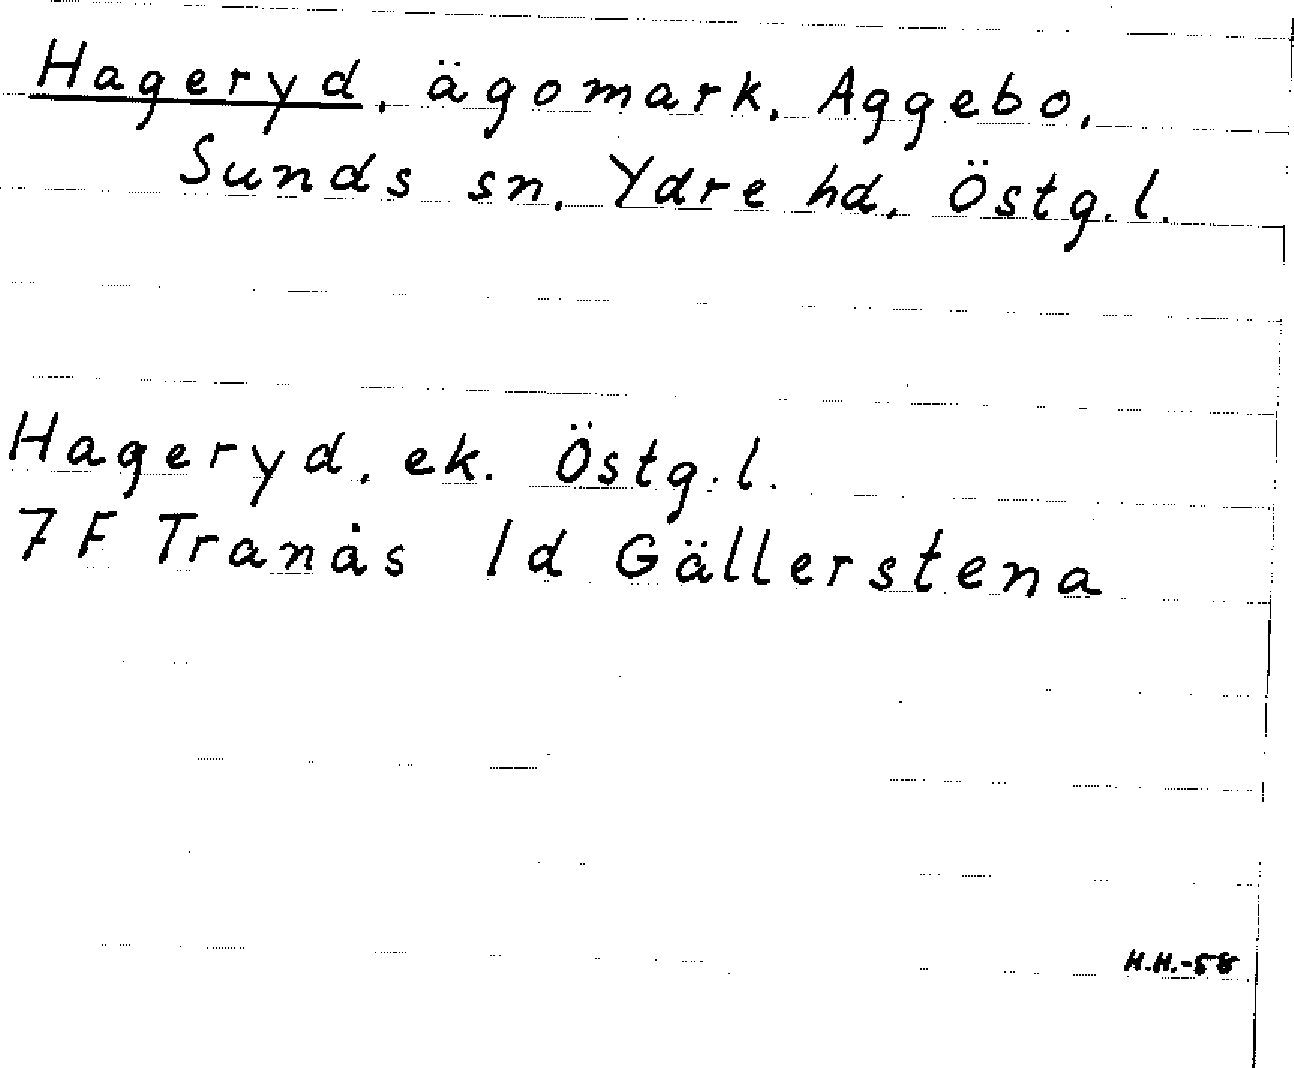 Hageryd, ägomark, Aggebo,
Sunds sn, Ydre hd, Östg.l.
Hageryd, ek. Östg.l.
7F Tranås 1d Gällerstena
H.H.-58